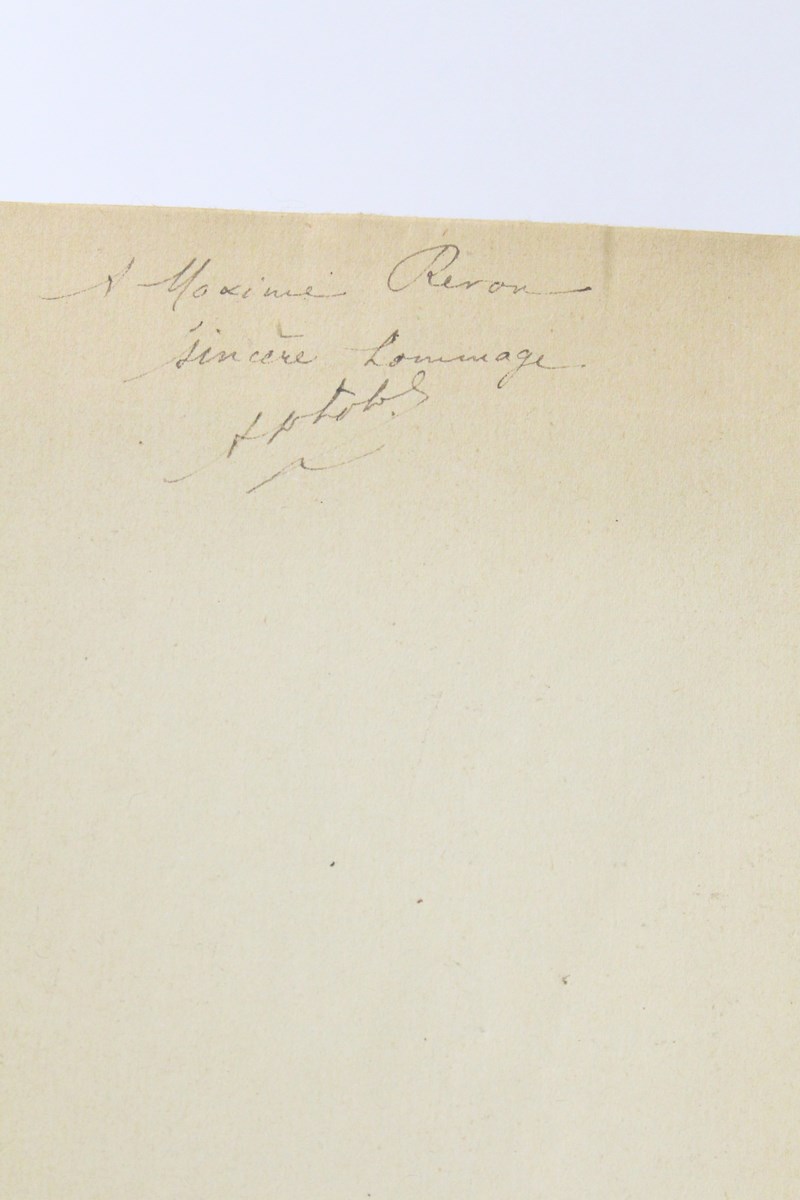 A Maxime Revon
sincère hommage